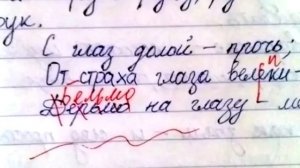 рук.
С глаз долой – прочь;
От страха глаза велеки –
и
бельмо
на глазу –